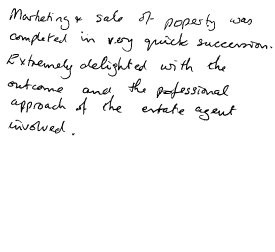 Marketing & sale of poperty was
completed in very quick succession.
Extremely delighted with the
outcome and the professional
approach of the estate agent
involved.